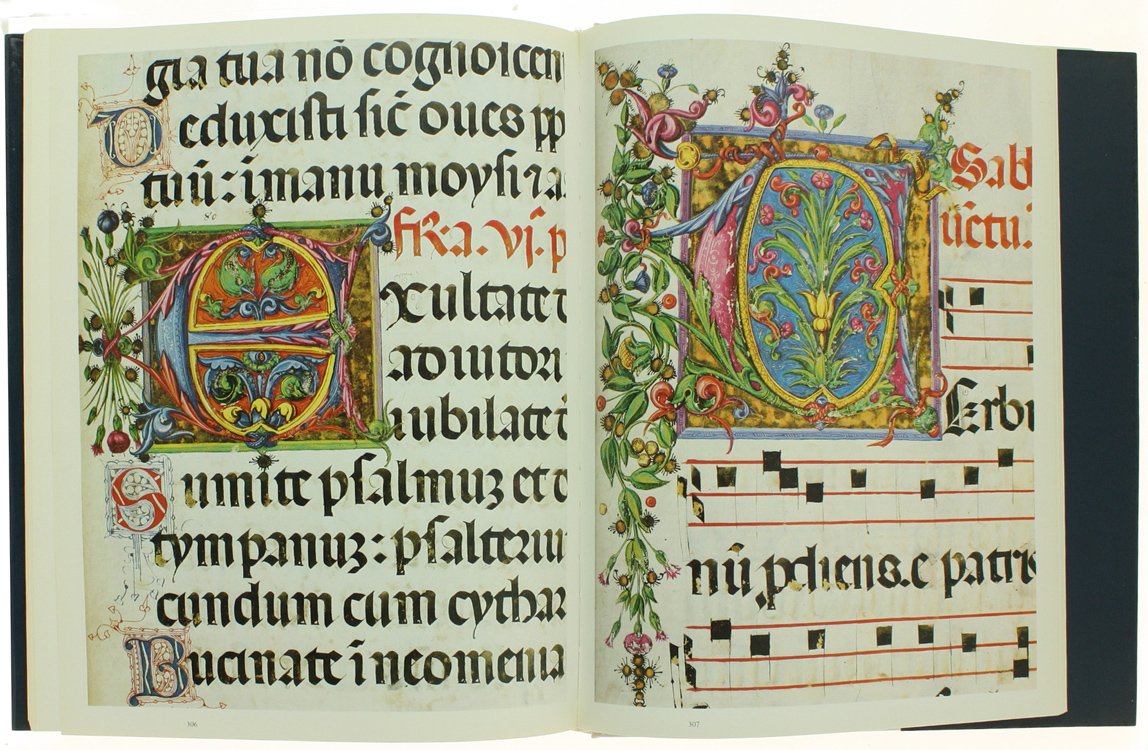 gia tua nō cognoīcen
Deduxisti sic̄ oues pp
tuū: ī manu moysi ⁊ a
fR.a. vj. p
Exultate
adiutori
iubilate
Sumite psalmuz et d
tympanuz: psalteriu
cundum cum cythar
Bucinate ī neomenia
306
Sabb
ūctu.
Erbu
nū pdiens. e patris
307